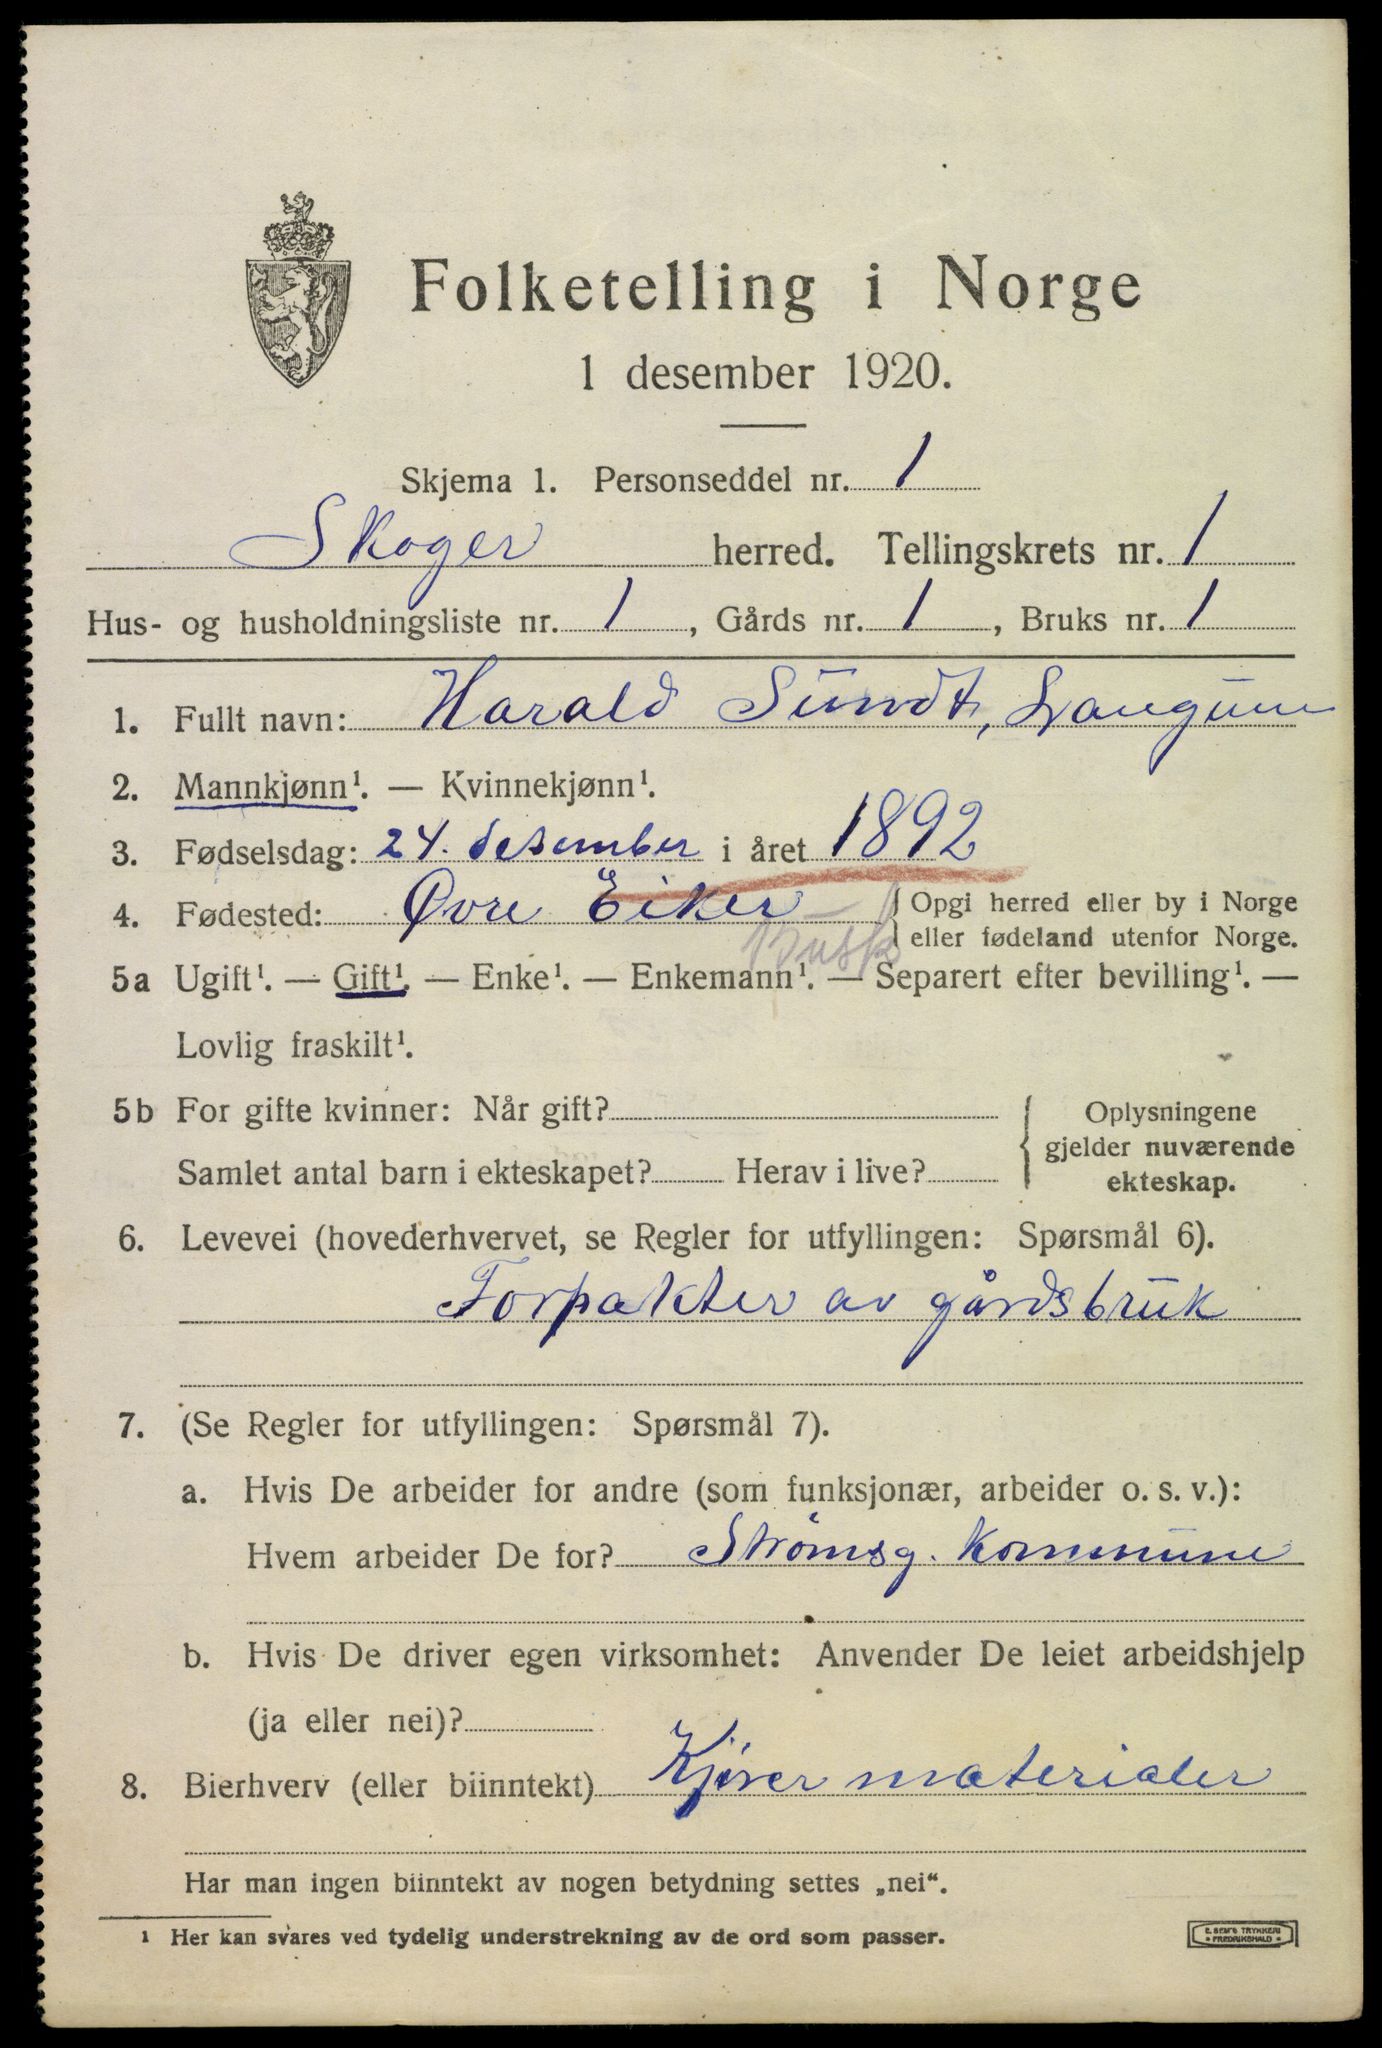 Folketelling i Norge
1 desember 1920.
Skjema 1. Personseddel nr. 1
Skoger herred. Tellingskrets nr. 1
Hus- og husholdningsliste nr. 1, Gårds nr. 1, Bruks nr. 1
1. Fullt navn: Harald Sundt, Langum
2. Mannkjønn¹. — Kvinnekjønn¹.
3. Fødselsdag: 24. desember i året 1892
4. Fødested: Øvre Eiker Opgi herred eller by i Norge
eller fødeland utenfor Norge.
Busk
5a Ugift¹. — Gift¹. — Enke¹. — Enkemann¹. — Separert efter bevilling¹. —
Lovlig fraskilt¹.
5b For gifte kvinner: Når gift?
Samlet antal barn i ekteskapet? Herav i live?
Oplysningene
gjelder nuværende
ekteskap.
6. Levevei (hovederhvervet, se Regler for utfyllingen: Spørsmål 6).
Forpakter av gårdsbruk
7. (Se Regler for utfyllingen: Spørsmål 7).
a. Hvis De arbeider for andre (som funksjonær, arbeider o. s. v.):
Hvem arbeider De for? Strømsg. Kommune
b. Hvis De driver egen virksomhet: Anvender De leiet arbeidshjelp
(ja eller nei)?
8. Bierhverv (eller biinntekt) Kjører materialer
Har man ingen biinntekt av nogen betydning settes „nei“.
¹ Her kan svares ved tydelig understrekning av de ord som passer.
E. SEM'S TRYKKERI
FREDRIKSHALD